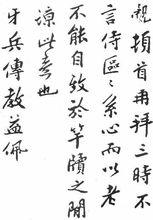 頓首再拜三時不
言侍區區系心而以老
不能自致於竿牘之間
諒此意也
牙兵傳教益佩